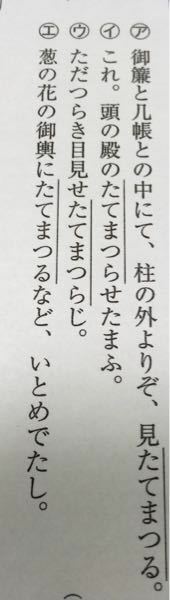 ㋐御簾と几帳との中にて、柱の外よりぞ、見たてまつる。
㋑これ。頭の殿のたてまつらせたまふ。
㋒ただつらき目見せたてまつらじ。
㋓葱の花の御輿にたてまつるなど、いとめでたし。